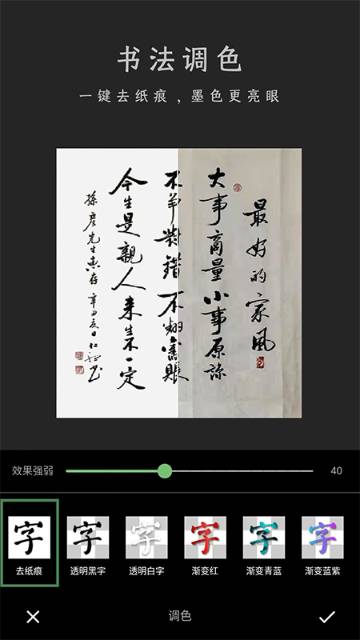 书法调色
一键去纸痕，墨色更亮眼
最好的家风
大事商量小事原谅
不争对错不翻旧账
今生是亲人来生不一定
孙彦先生惠存
效果强弱
40
字
字
字
字
字
字
去纸痕
透明黑字
透明白字
渐变红
渐变青蓝
渐变蓝紫
调色